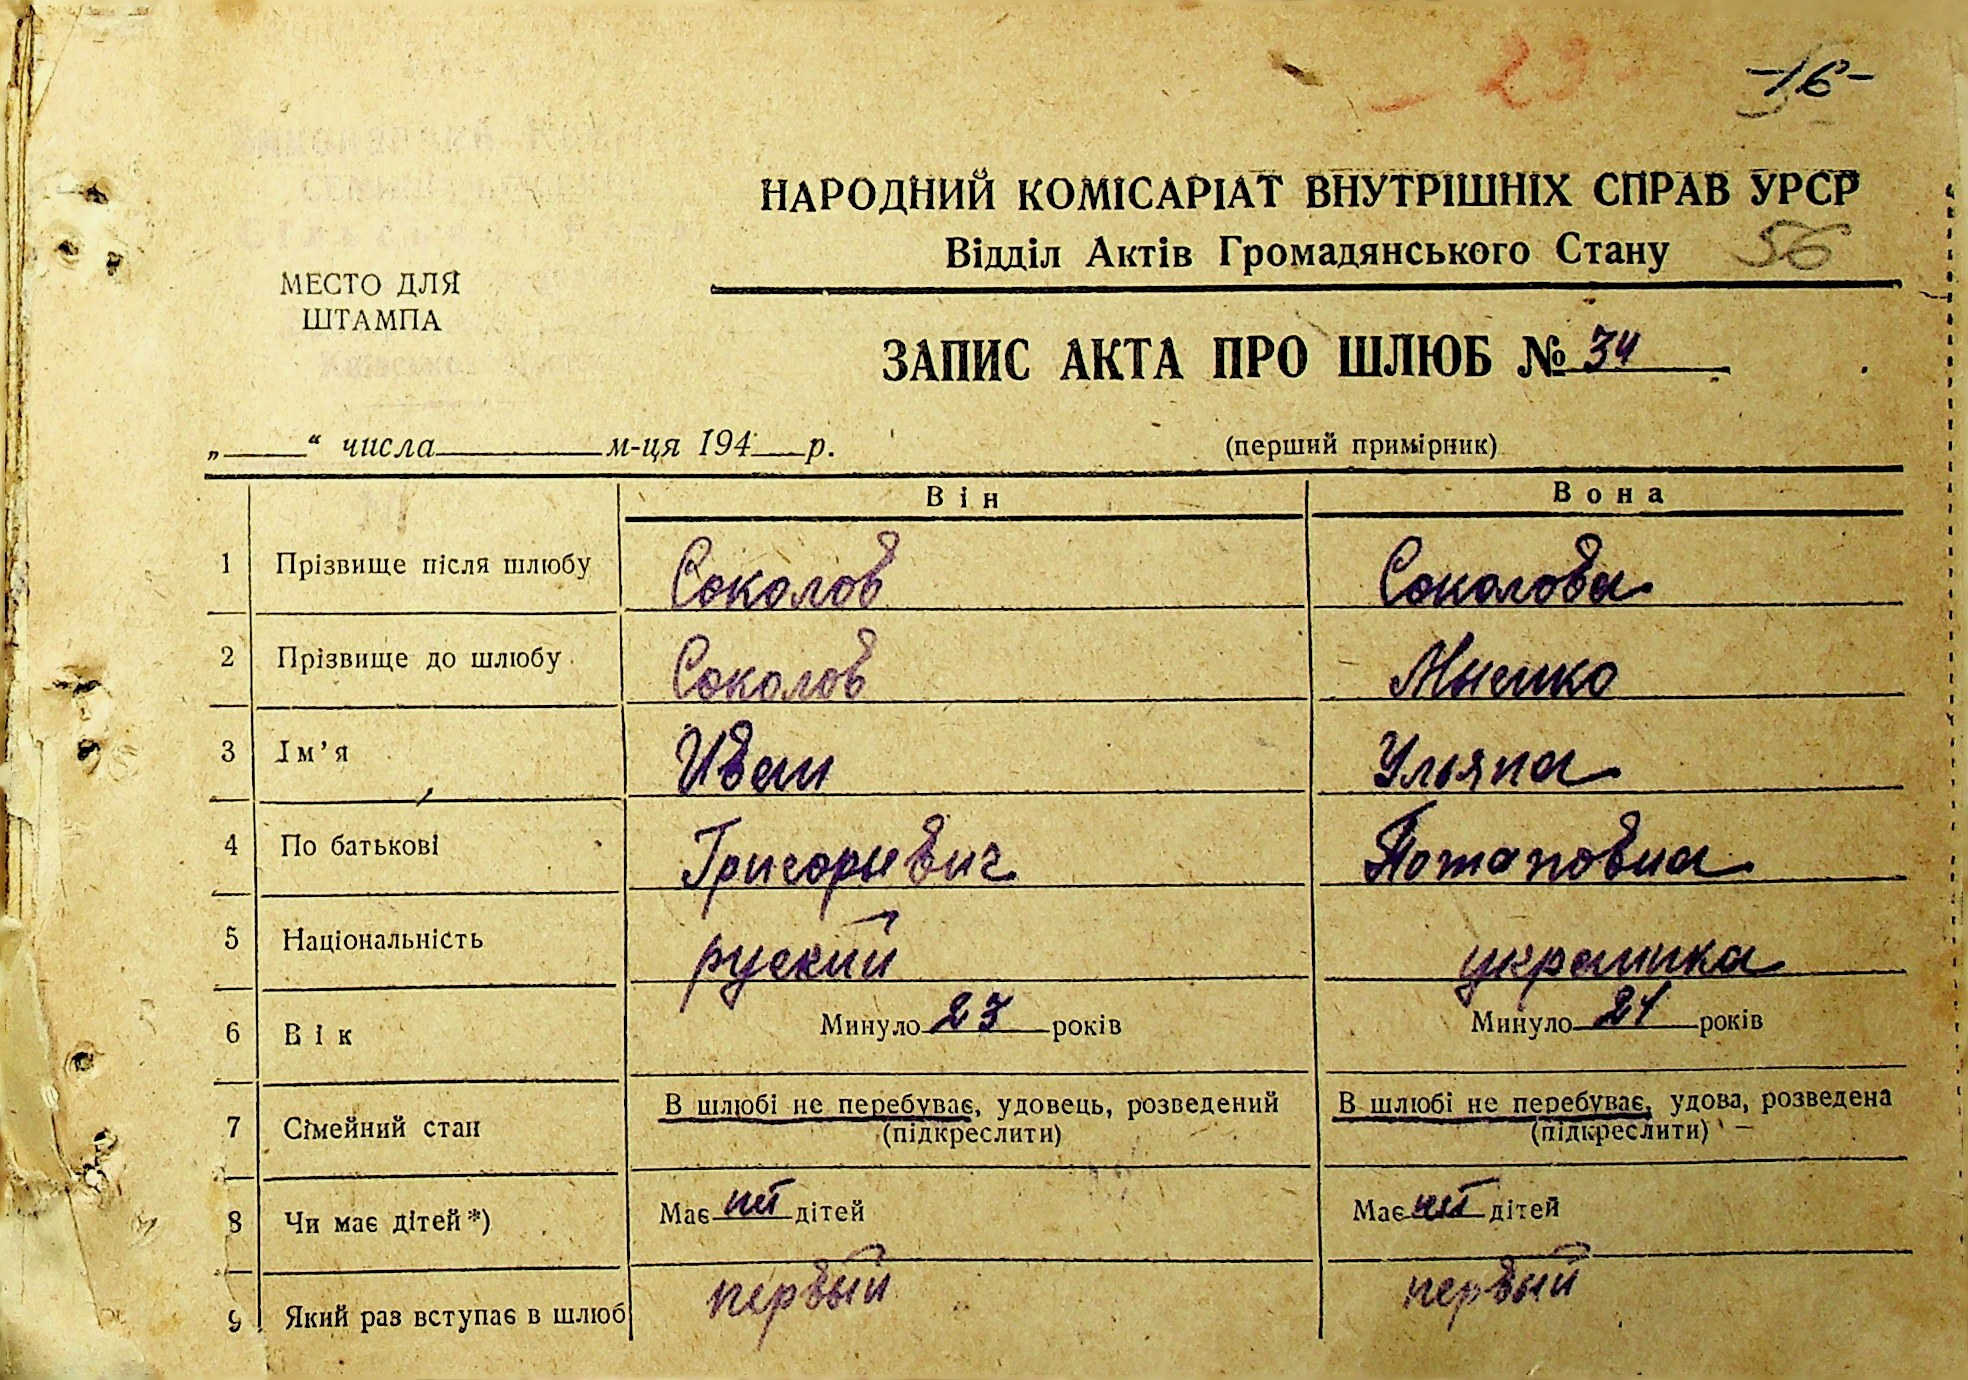 - 29 -
-16-
НАРОДНИЙ КОМІСАРІАТ ВНУТРІШНІХ СПРАВ УРСР
Відділ Актів Громадянського Стану 56
МЕСТО ДЛЯ
ШТАМПА
ЗАПИС АКТА ПРО ШЛЮБ № 34
„____“ числа________м-ця 194__р. (перший примірник)
Він Вона
1 Прізвище після шлюбу Соколов Соколова
2 Прізвище до шлюбу Соколов
3 Ім’я Иван Ульяна
4 По батькові Григорьевич Потаповна
5 Національність руский украинка
6 Вік Минуло 23 років Минуло 21 років
7 Сімейний стан В шлюбі не перебуває, удовець, розведений В шлюбі не перебуває, удова, розведена
(підкреслити) (підкреслити)
8 Чи має дітей*) Має нет дітей Має нет дітей
9 Який раз вступає в шлюб первый первый